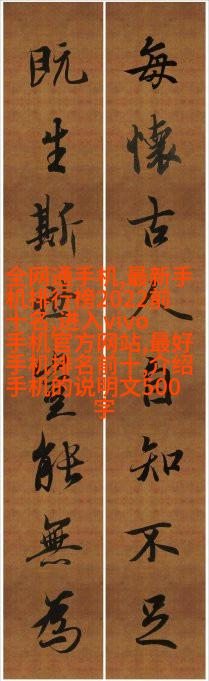 每懷古人自知不足
既生斯能無為
全网通手机,最新手
机排行榜2022前
十名,进入vivo
手机官方网站,最好
手机排名前十,介绍
手机的说明文500
字